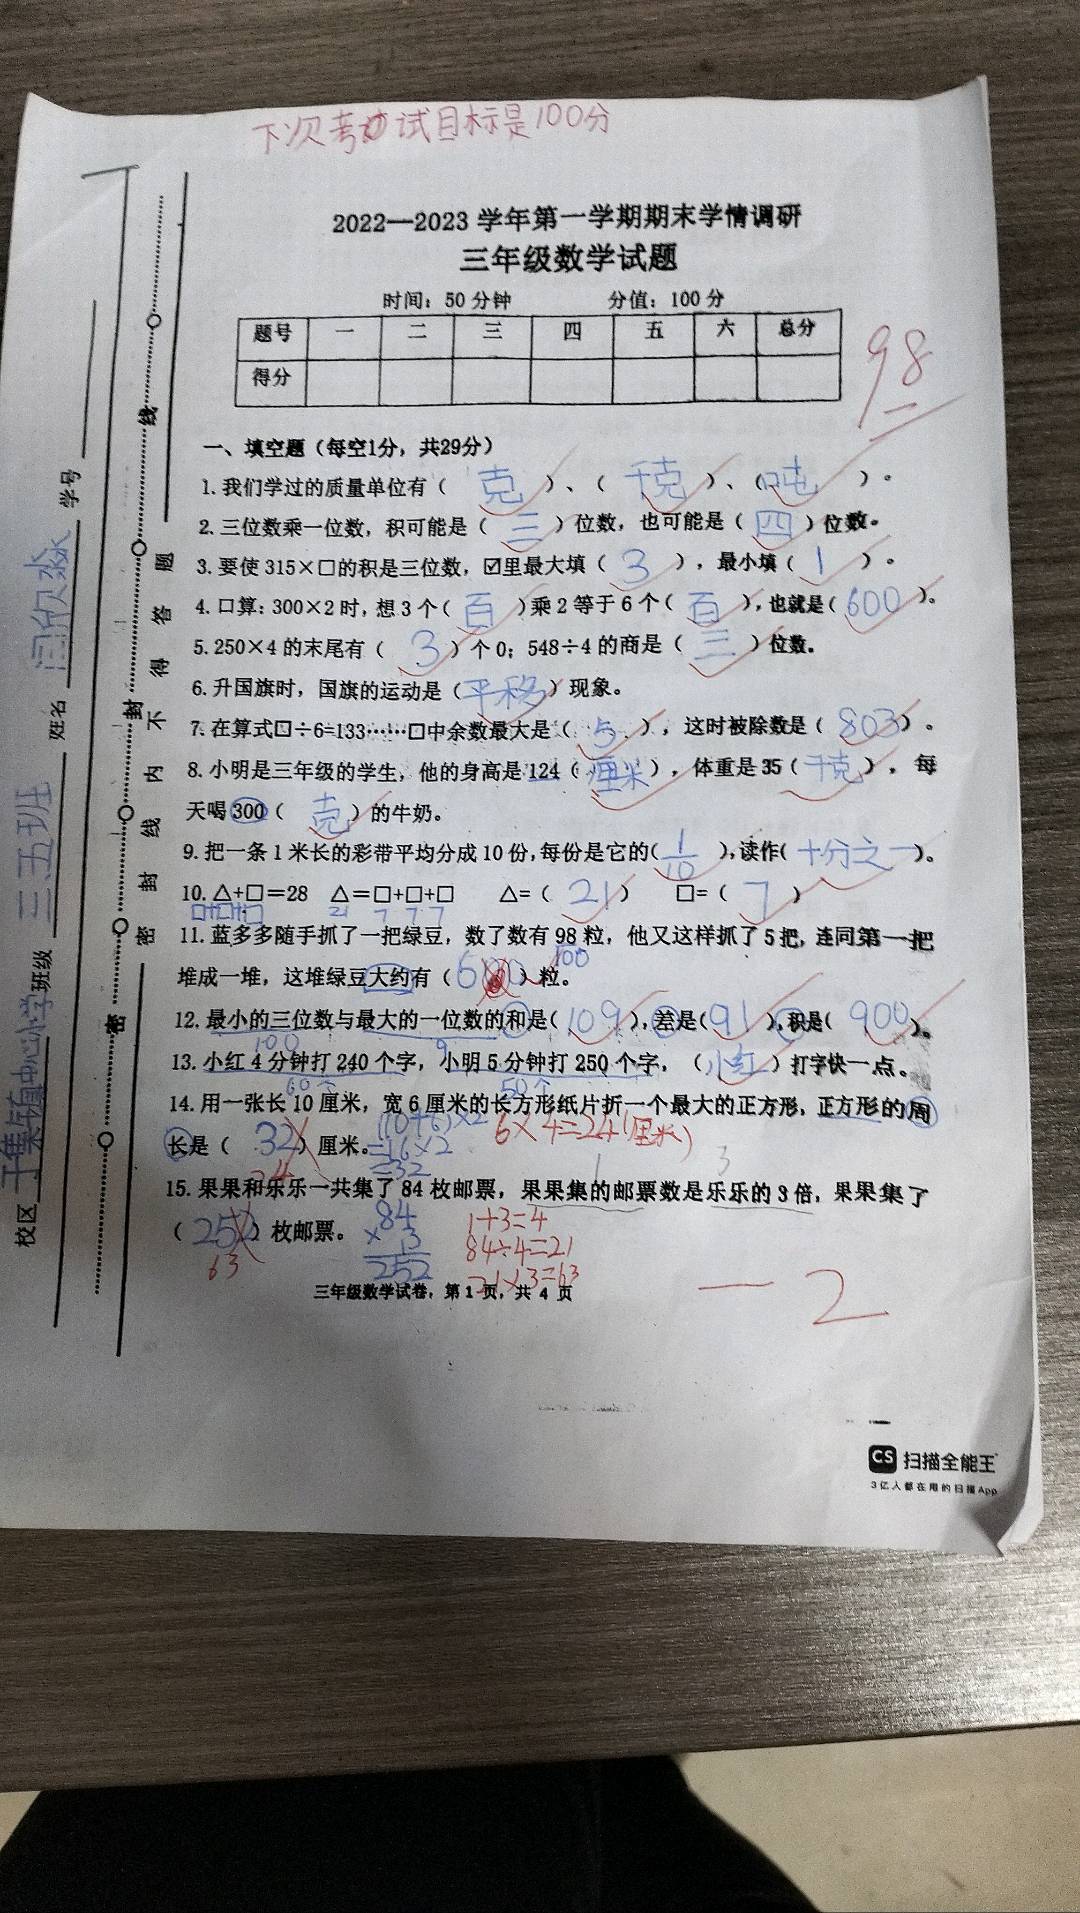 下次考试目标是100分
2022—2023学年第一学期期末学情调研
三年级数学试题
时间：50分钟 分值：100分
题号 一 二 三 四 五 六 总分
得分
98
一、填空题（每空1分，共29分）
1.我们学过的质量单位有（克）、（千克）、（吨）。
2.三位数乘一位数，积可能是（三）位数，也可能是（四）位数。
3.要使315×□的积是三位数，☑里最大填（3），最小填（1）。
4.口算：300×2时，想3个（百）乘2等于6个（百），也就是（600）。
5.250×4的末尾有（3）个0；548÷4的商是（三）位数。
6.升国旗时，国旗的运动是（平移）现象。
7.在算式□÷6=133……□中余数最大是（5），这时被除数是（803）。
8.小明是三年级的学生，他的身高是124（厘米），体重是35（千克），每
天喝300（克）的牛奶。
9.把一条1米长的彩带平均分成10份，每份是它的（1/10），读作（十分之一）。
10.△+□=28 △=□+□+□ △=（21） □=（7）
□+□+□ 21 7 7 7
11.蓝多多随手抓了一把绿豆，数了数有98粒，他又这样抓了5把，连同第一把
100
堆成一堆，这堆绿豆大约有（600）粒。
12.最小的三位数与最大的一位数的和是（109），差是（91），积是（900）。
100 9
13.小红4分钟打240个字，小明5分钟打250个字，（小红）打字快一点。
60个 50个
14.用一张长10厘米，宽6厘米的长方形纸片折一个最大的正方形，正方形的周
长是（32）厘米。
(10+6)×2
=16×2
=32
6×4=24(厘米)
24
1 3
15.果果和乐乐一共集了84枚邮票，果果集的邮票数是乐乐的3倍，果果集了
（252）枚邮票。
63
84
× 3
252
1+3=4
84÷4=21
21×3=63
三年级数学试卷，第1页，共4页
—2
校区 于集镇中心小学 班级 三五班 姓名 闫欣淼 学号
密 封 线 内 不 得 答 题
密 封 线
CS 扫描全能王
3亿人都在用的扫描App